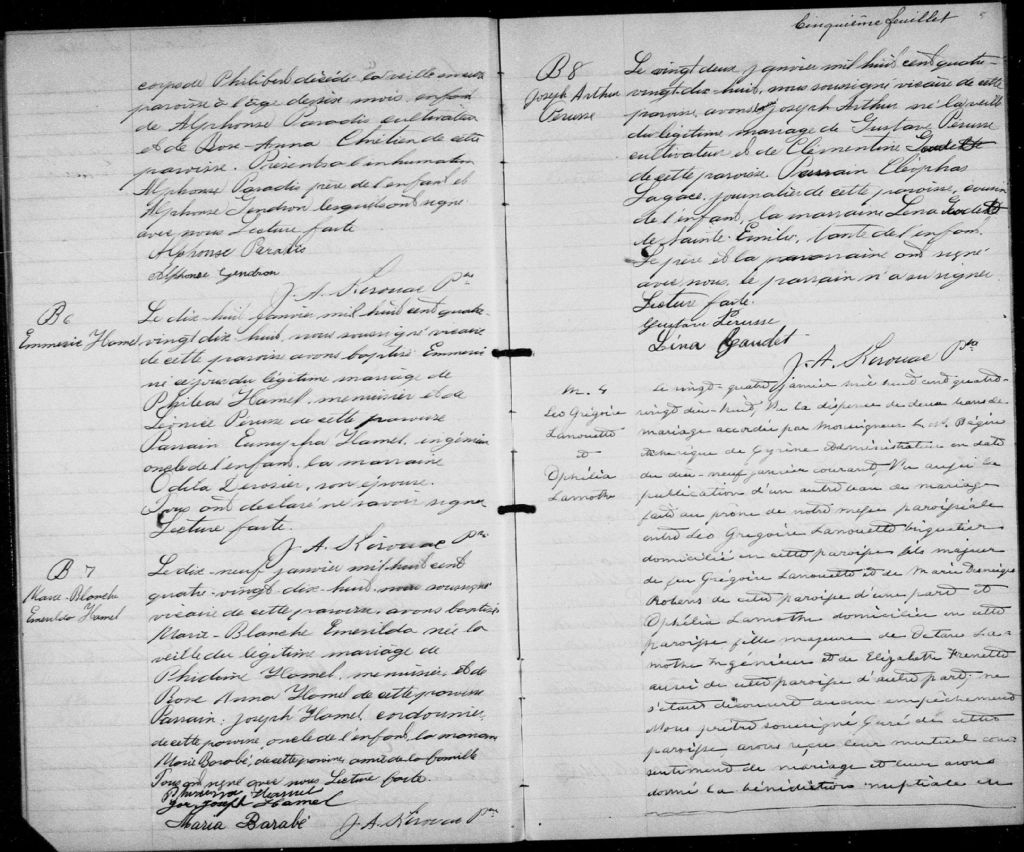 corps de Philibert décédé la veille en cette
paroisse à l'âge de six mois enfant
de Alphonse Paradis cultivateur
et de Rose-Anna Chrétien de cette
paroisse. Présents a l'inhumation
Alphonse Paradis père de l'enfant et
Alphonse Gendron lesquels ont signé
avec nous Lecture faite
Alphonse Paradis
Alphonse Gendron
J. A. Kerouac Ptre
B 6
Emmerie Hamel
Le dix-huit Janvier mil huit cent quatre
vingt dix huit, nous soussigné vicaire
de cette paroisse avons baptisé Emmerie
né ce jour du légitime mariage de
Phileas Hamel, menuisier et de
Léonice Perusse de cette paroisse
Parrain Hamel, ingénieur
oncle de l'enfant, la marraine
Odila Derosier, son épouse.
ont déclaré ne savoir signer
Lecture faite.
J. A. Kerouac Ptre
B 7
Marie-Blanche
Emerilda Hamel
Le dix-neuf janvier mil huit cent
quatre-vingt dix-huit nous soussigné
vicaire de cette paroisse, avons baptisé
Marie-Blanche Emerilda née la
veille du légitime mariage de
Hamel, menuisier, et de
Rose Anna Hamel de cette paroisse
Parrain: Joseph Hamel, cordonnier,
de cette paroisse, oncle de l'enfant, la marraine
Marie Barabé, de cette paroisse, amie de la famille
Tous ont signé avec nous Lecture faite.
Hamel
Joseph Hamel
Maria Barabé
J. A. Kerouac Ptre
Cinquième feuillet
5
B 8
Joseph Arthur
Perusse
Le vingt deux janvier mil huit cent quatre-
vingt dix-huit, nous soussigné vicaire de cette
paroisse, avons baptisé Joseph Arthur né la veille
du légitime mariage de Gustave Perusse
cultivateur et de Clémentine Gaudette
de cette paroisse Parrain Cléophas
Lagacé, journalier de cette paroisse, cousin
de l'enfant, la marraine Lena Gaudette
de Sainte-Emilie, tante de l'enfant.
Le père et la marraine ont signé
avec nous, le parrain n'a su signer
Lecture faite.
Gustave Perusse
Léna Gaudet
J. A. Kerouac Ptre
M. 4
Leo Grégoire
Lanouette
et
Ophélia
Lamothe
Le vingt-quatre janvier mil huit cent quatre-
vingt dix-huit, Vu la dispense de deux bans de
mariage accordée par Monseigneur L. N. Bégin
Archevêque de Cyrène Administrateur en date
du dix-neuf janvier courant, Vu aussi la
publication d'un autre ban de mariage
fait au prône de notre messe paroissiale
entre Leo Grégoire Lanouette briquetier
domicilié en cette paroisse fils majeur
de feu Grégoire Lanouette et de Marie
de cette paroisse d'une part et
Ophélia Lamothe domiciliée en cette
paroisse fille majeure de La-
mothe Ingénieur et de Elizabeth Frenette
aussi de cette paroisse d'autre part; ne
s'étant découvert aucun empêchement
Nous prêtre soussigné Curé de cette
paroisse avons reçu leur mutuel con-
sentiment de mariage et leur avons
donné la bénédiction nuptiale en